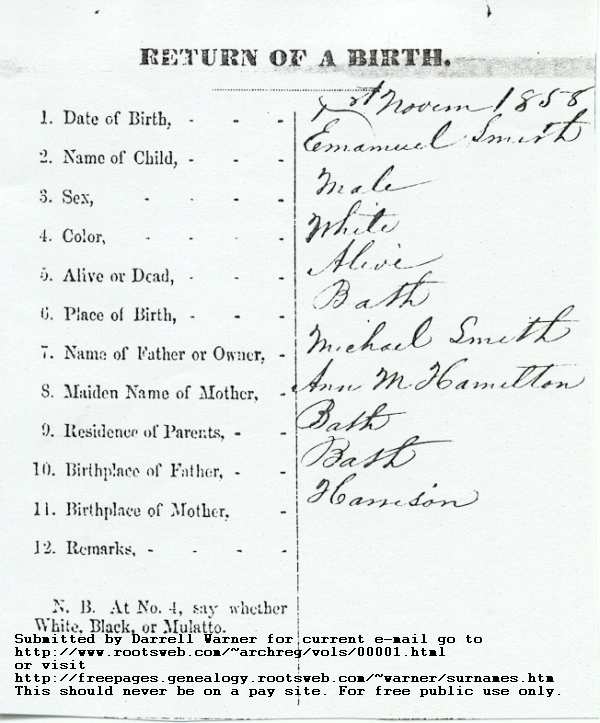 RETURN OF A BIRTH.
1. Date of Birth, - - - Novem 1858
2. Name of Child, - - - Emanuel Smith
3. Sex, - - - - Male
4. Color, - - - - White
5. Alive or Dead, - - - Alive
6. Place of Birth, - - - Bath
7. Name of Father or Owner, - Michael Smith
8. Maiden Name of Mother, - Ann M Hamilton
9. Residence of Parents, - - Bath
10. Birthplace of Father, - - Bath
11. Birthplace of Mother, - Harrison
12. Remarks, - - - -
N. B. At No. 4, say whether
White, Black, or Mulatto.
Submitted by Darrell Warner for current e-mail go to
http://www.rootsweb.com/~archreg/vols/00001.html
or visit
http://freepages.genealogy.rootsweb.com/~warner/surnames.htm
This should never be on a pay site. For free public use only.